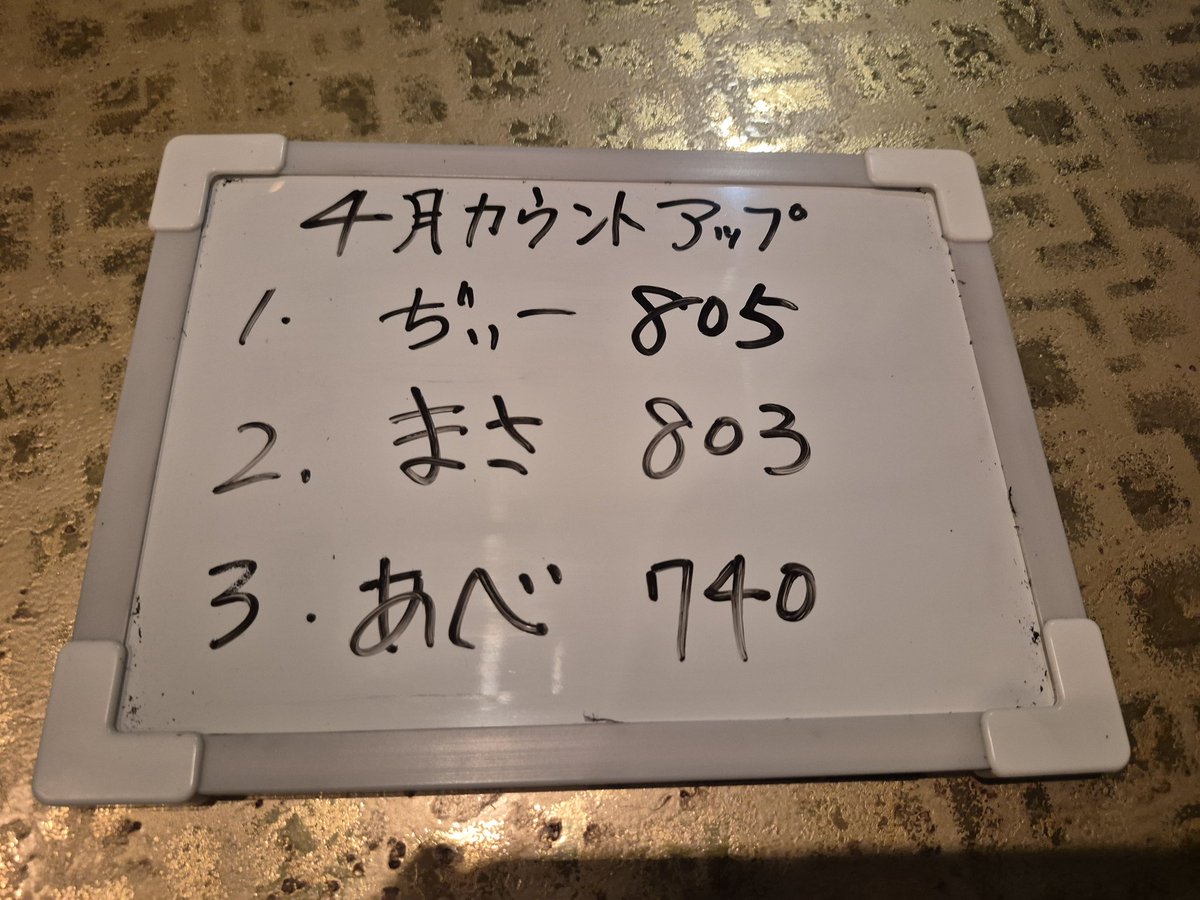 4月カウントアップ
1. ぢぃー 805
2. まさ 803
3. あべ 740